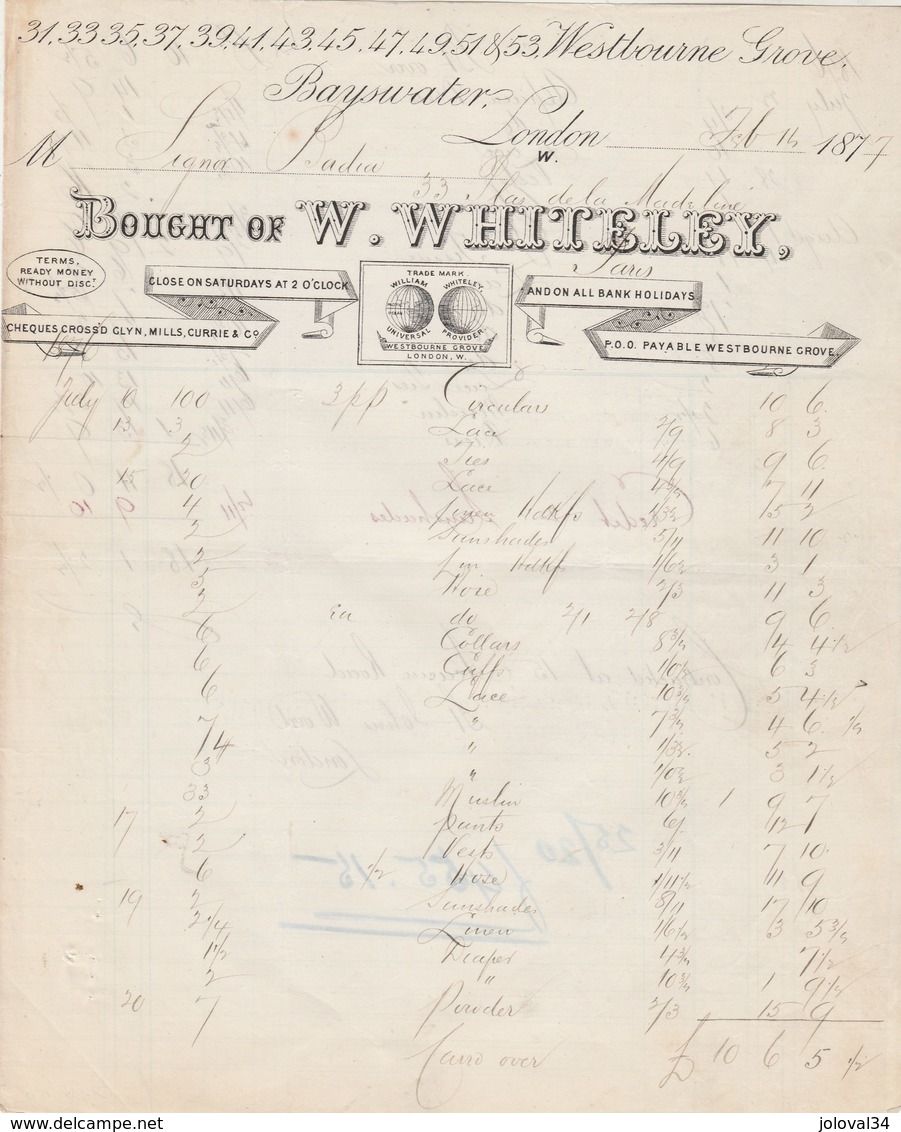 31, 33 35, 37, 39, 41, 43, 45, 47, 49, 51 & 53, Westbourne Grove,
Bayswater,
London W. Feb 14 1877
M Signor Badia
33 Plas de la Madeline
BOUGHT OF W. WHITELEY,
Paris
TERMS, READY MONEY WITHOUT DISCT.
CLOSE ON SATURDAYS AT 2 O'CLOCK
TRADE MARK.
WILLIAM WHITELEY
UNIVERSAL PROVIDER
WESTBOURNE GROVE
LONDON, W.
AND ON ALL BANK HOLIDAYS
CHEQUES CROSSD GLYN, MILLS, CURRIE & Co
P.O.O. PAYABLE WESTBOURNE GROVE.
1876
July 10 100 3 pp Circulars 10 6
13 3 Lace 2/9 8 3
2 Ties 4/9 9 6
15 20 Lace 4 3/4 7 11
4 Linen Hdkfs 15 2
2 Sunshades 5/11 11 10
2 Hdkfs 1/6½ 3 1
5 Hose 2/3 11 3
2 ea do 2/1 2/8 9 6
6 Collars 14 4½
6 Cuffs 1/0½ 6 3
6 Lace 10 3/4 5 4½
7 " 7 3/4 4 6 ½
4 " 1/3½ 5 2
3 " 1/0½ 3 1½
33 Muslin 10 3/4 1 9 7
17 2 Pants 6/ 12
2 Vests 3/11 7 10
6 1/2 Hose 1/11½ 11 9
19 2 Sunshades 8/11 17 10
2 1/4 Linen 1/6½ 3 5 3/4
1½ Diaper 4 3/4 7½
2 " 10 3/4 1 9½
20 7 Powder 2/3 15 9
Carrd over £ 10 6 5 ½
www.delcampe.net
joloval34